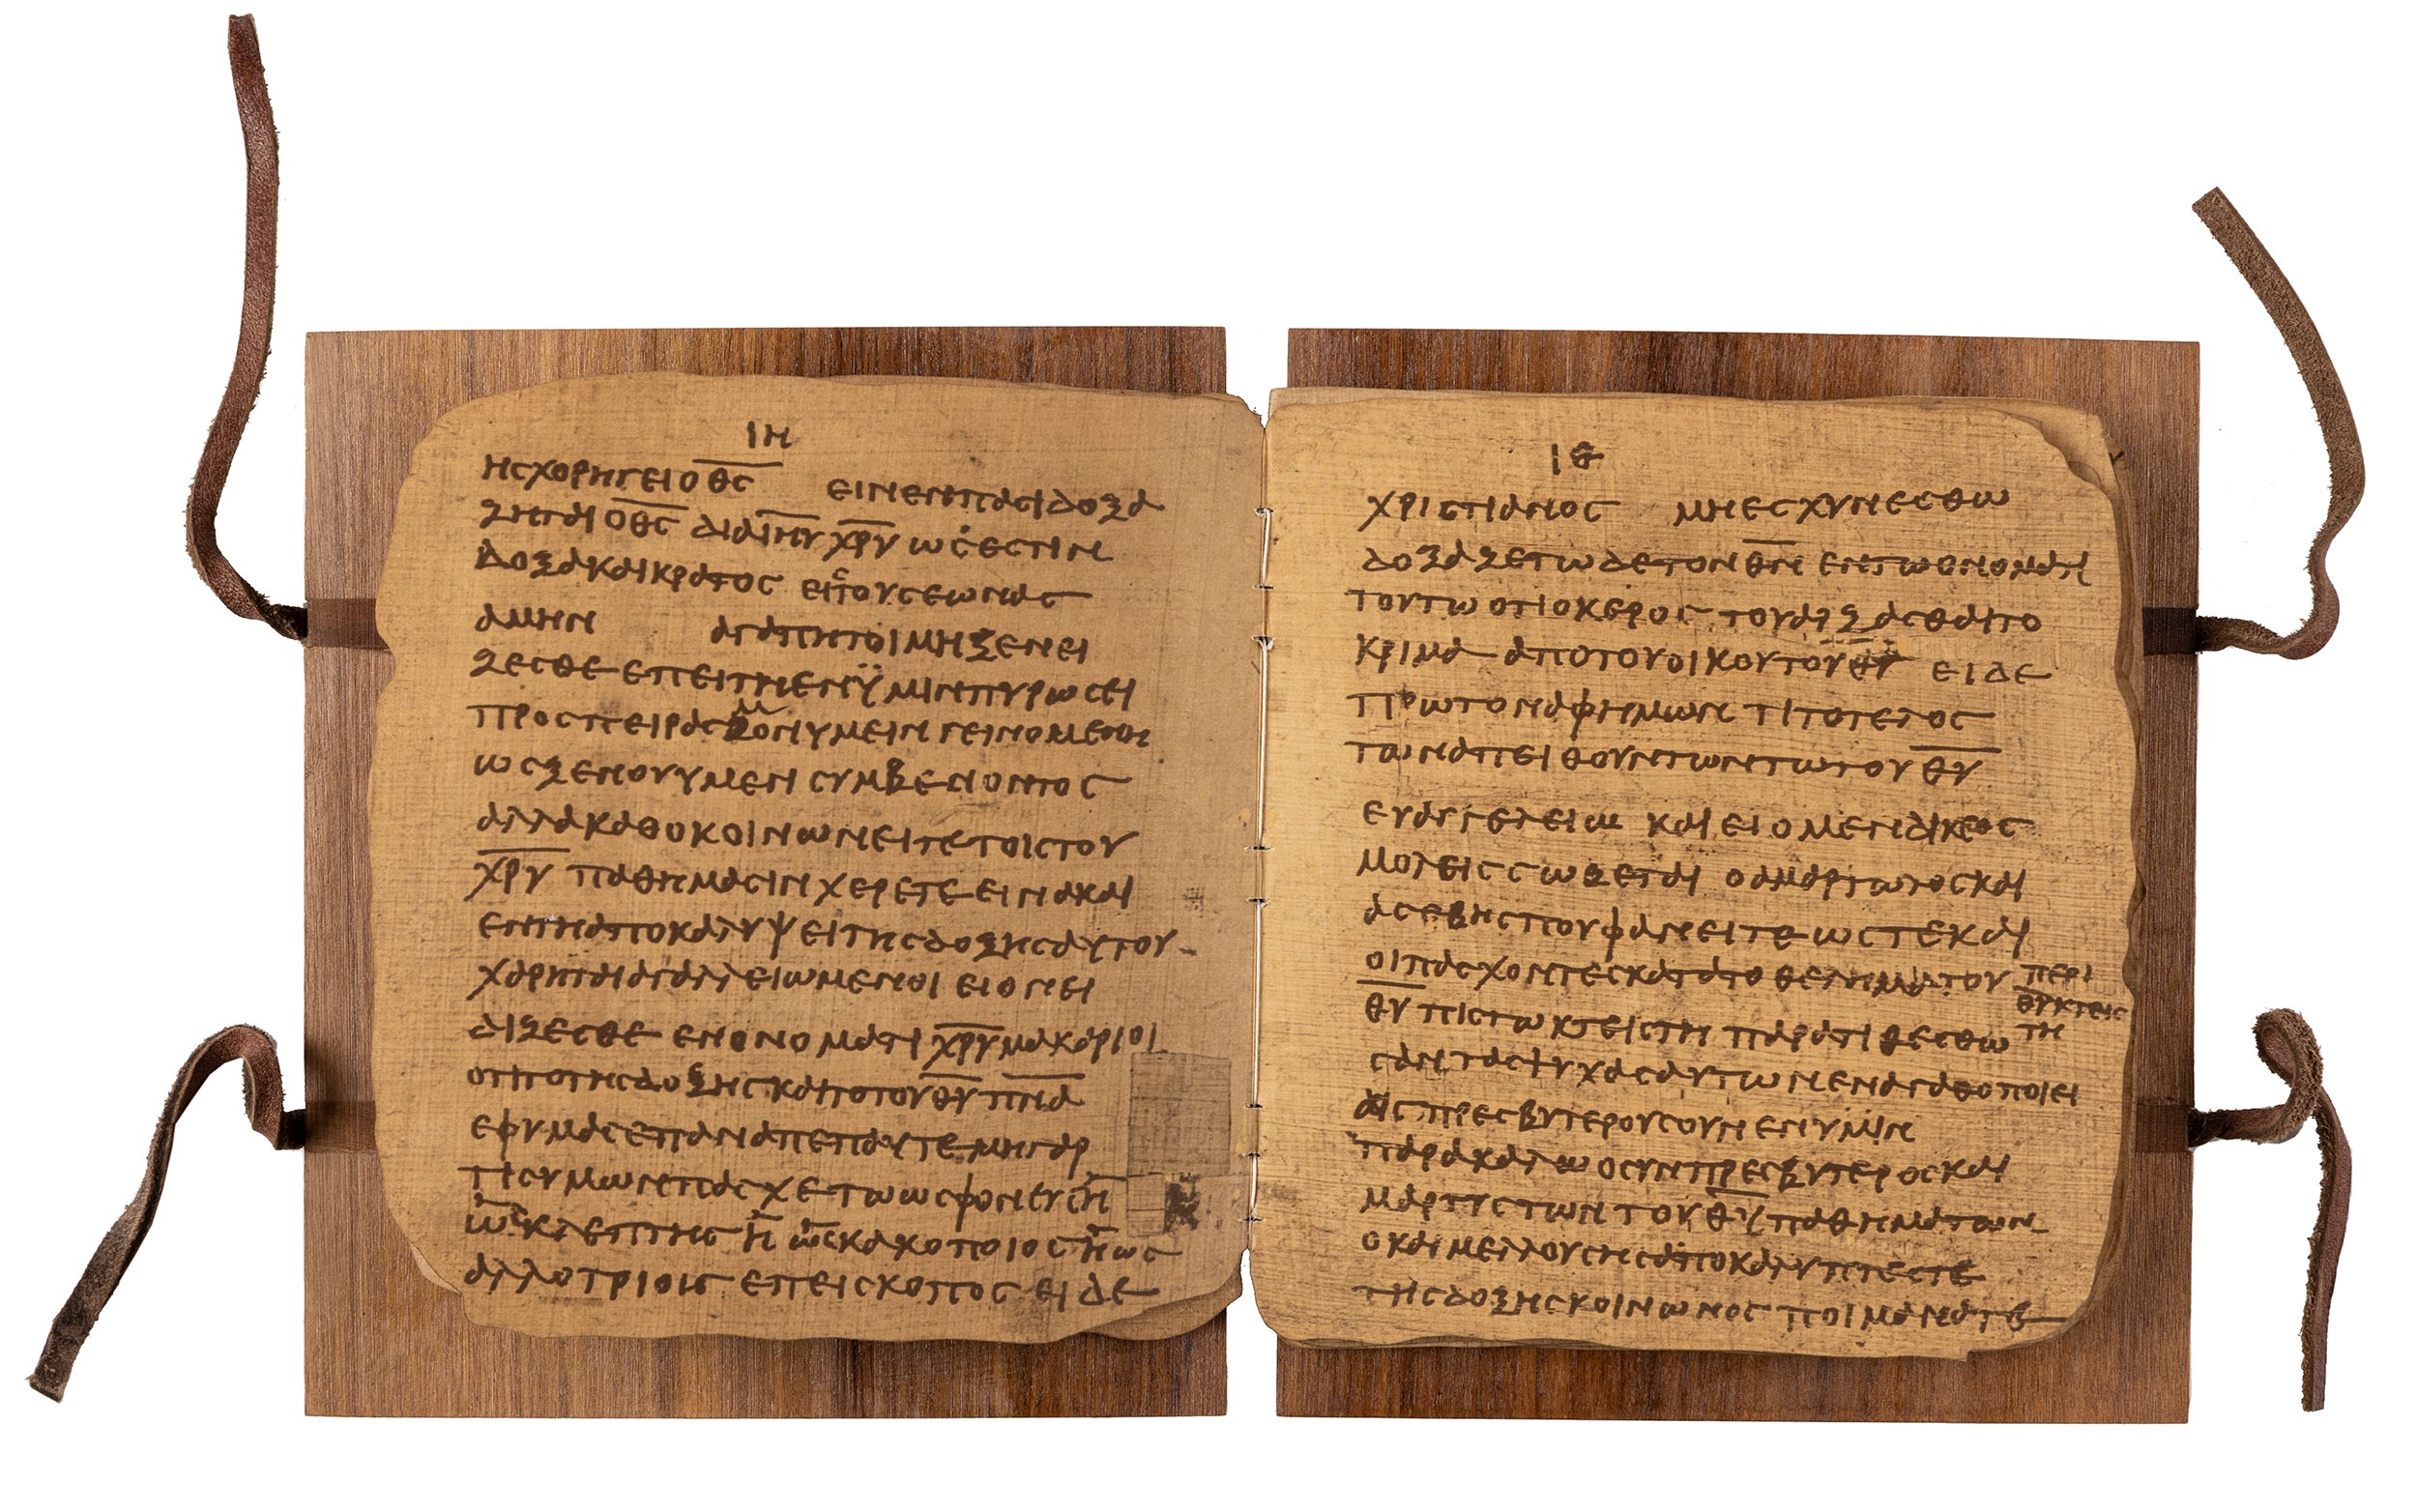 ΙΗ
ΗϹΧΟΡΗΓΕΙΟΘ̅Ϲ̅ ΕΙΝΕΝΠΑϹΙΔΟΞΑ
ΖΗΤΑΙΟΘ̅Ϲ̅ ΔΙΑΙ̅Η̅Υ̅ Χ̅Ρ̅Υ̅ ΩϹΕϹΤΙΝ
ΔΟΞΑΚΑΙΚΡΑΤΟϹ ΕΙϹΤΟΥϹΕΩΝΑϹ
ΑΜΗΝ ΑΓΑΠΗΤΟΙΜΗΞΕΝΕΙ
ΖΕϹΘΕ ΕΠΕΙΤΗΕΝΫΜΙΝΠΥΡΩϹΕΙ
ΠΡΟϹΠΕΙΡΑϹΜΟΝΥΜΕΙΝ ΓΕΙΝΟΜΕΝΗ
ΩϹΞΕΝΟΥΥΜΕΝ ϹΥΜΒΕΝΟΝΤΟϹ
ΑΛΛΑΚΑΘΟΚΟΙΝΩΝΕΙΤΕΤΟΙϹΤΟΥ
Χ̅Ρ̅Υ̅ ΠΑΘΗΜΑϹΙΝΧΕΡΕΤΕ ΕΙΝΑΚΑΙ
ΕΝΤΗΑΠΟΚΑΛΥΨΕΙΤΗϹΔΟΞΗϹΑΥΤΟΥ
ΧΑΡΗΤΑΙΑΓΑΛΛΕΙΩΜΕΝΟΙ ΕΙΟΝΕΙ
ΔΙΖΕϹΘΕ ΕΝΟΝΟΜΑΤΙ Χ̅Ρ̅Υ̅ΜΑΚΑΡΙΟΙ
ΟΤΙΤΟΤΗϹΔΟΞΗϹΚΑΙΤΟΤΟΥΘ̅Υ̅ Π̅Ν̅Α̅
ΕΦΥΜΑϹΕΠΑΝΑΠΕΠΑΥΤΕ ΜΗΓΑΡ
ΤΙϹΥΜΩΝΠΑϹΧΕΤΩΩϹΦΟΝΕΥϹΗ
ΩϹΚΛΕΠΤΗϹ Η ΩϹΚΑΚΟΠΟΙΟϹ ΗΩϹ
ΑΛΛΟΤΡΙΟΙϹ ΕΠΕΙϹΚΟΠΟϹ ΕΙΔΕ
ΙΘ
ΧΡΙϹΤΙΑΝΟϹ ΜΗΕϹΧΥΝΕϹΘΩ
ΔΟΞΑΖΕΤΩΔΕΤΟΝΘ̅Ν̅ ΕΝΤΩΟΝΟΜΑΤΙ
ΤΟΥΤΩ ΟΤΙΟΚΕΡΟϹ ΤΟΥΑΡΞΑϹΘΑΙΤΟ
ΚΡΙΜΑ ΑΠΟΤΟΥΟΙΚΟΥΤΟΥΘ̅Υ̅ ΕΙΔΕ
ΠΡΩΤΟΝΑΦΗΜΩΝ ΤΙΤΟΤΕΛΟϹ
ΤΩΝΑΠΕΙΘΟΥΝΤΩΝΤΩΤΟΥΘ̅Υ̅
ΕΥΑΓΓΕΛΕΙΩ ΚΑΙ ΕΙ ΟΜΕΝΔΙΚΕΟϹ
ΜΟΛΕΙϹϹΩΖΕΤΑΙ ΟΑΜΑΡΤΩΛΟϹΚΑΙ
ΑϹΕΒΗϹΠΟΥΦΑΝΕΙΤΕ ΩϹΤΕΚΑΙ
ΟΙΠΑϹΧΟΝΤΕϹΚΑΤΑΤΟ ΘΕΛΗΜΑΤΟΥ ΠΕΡΙ
Θ̅Υ̅ΚΤΕΙϹ
Θ̅Υ̅ ΠΙϹΤΩΚΤΕΙϹΤΗ ΠΑΡΑΤΙΘΕϹΘΩ ΤΗ
ϹΑΝΤΑϹΨΥΧΑϹΑΥΤΩΝΕΝΑΓΑΘΟΠΟΙΕΙ
ΑΙϹΠΡΕϹΒΥΤΕΡΟΥϹΟΥΝ ΕΝΥΜΙΝ
ΠΑΡΑΚΑΛΩ ΟϹΥΝΠΡΕϹΒΥΤΕΡΟϹΚΑΙ
ΜΑΡΤΥϹΤΩΝ ΤΟΥ Θ̅Υ̅ΠΑΘΗΜΑΤΩΝ
ΟΚΑΙΜΕΛΛΟΥϹΗϹΑΠΟΚΑΛΥΠΤΕϹΤΕ
ΤΗϹΔΟΞΗϹΚΟΙΝΩΝΟϹ ΠΟΙΜΑΝΑΤΕ